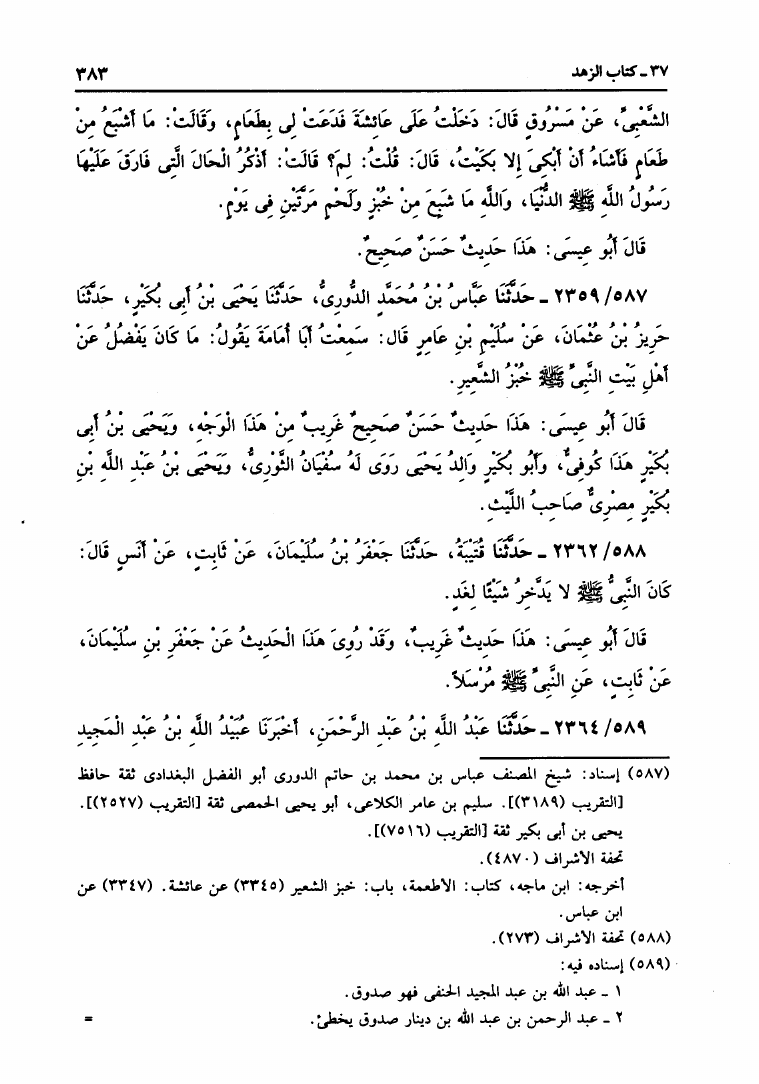 ٣٧ ـ كتاب الزهد ٣٨٣
الشَّعْبِىِّ، عَنْ مَسْرُوقٍ قَالَ: دَخَلْتُ عَلَى عَائِشَةَ فَدَعَتْ لِى بِطَعَامٍ، وَقَالَتْ: مَا أَشْبَعُ مِنْ
طَعَامٍ فَأَشَاءُ أَنْ أَبْكِىَ إِلا بَكَيْتُ، قَالَ: قُلْتُ: لِمَ؟ قَالَتْ: أَذْكُرُ الْحَالَ الَّتِى فَارَقَ عَلَيْهَا
رَسُولُ اللَّهِ ﷺ الدُّنْيَا، وَاللَّهِ مَا شَبِعَ مِنْ خُبْزٍ وَلَحْمٍ مَرَّتَيْنِ فِى يَوْمٍ.
قَالَ أَبُو عِيسَى: هَذَا حَدِيثٌ حَسَنٌ صَحِيحٌ.
٢٣٥٩/٥٨٧ ـ حَدَّثَنَا عَبَّاسُ بْنُ مُحَمَّدٍ الدُّورِىُّ، حَدَّثَنَا يَحْيَى بْنُ أَبِى بُكَيْرٍ، حَدَّثَنَا
حَرِيزُ بْنُ عُثْمَانَ، عَنْ سُلَيْمِ بْنِ عَامِرٍ قَال: سَمِعْتُ أَبَا أُمَامَةَ يَقُولُ: مَا كَانَ يَفْضُلُ عَنْ
أَهْلِ بَيْتِ النَّبِىِّ ﷺ خُبْزُ الشَّعِيرِ.
قَالَ أَبُو عِيسَى: هَذَا حَدِيثٌ حَسَنٌ صَحِيحٌ غَرِيبٌ مِنْ هَذَا الْوَجْهِ، وَيَحْيَى بْنُ أَبِى
بُكَيْرٍ هَذَا كُوفِىٌّ، وَأَبُو بُكَيْرٍ وَالِدُ يَحْيَى رَوَى لَهُ سُفْيَانُ الثَّوْرِىُّ، وَيَحْيَى بْنُ عَبْدِ اللَّهِ بْنِ
بُكَيْرٍ مِصْرِىٌّ صَاحِبُ اللَّيْثِ.
٢٣٦٢/٥٨٨ ـ حَدَّثَنَا قُتَيْبَةُ، حَدَّثَنَا جَعْفَرُ بْنُ سُلَيْمَانَ، عَنْ ثَابِتٍ، عَنْ أَنَسٍ قَالَ:
كَانَ النَّبِىُّ ﷺ لا يَدَّخِرُ شَيْئًا لِغَدٍ.
قَالَ أَبُو عِيسَى: هَذَا حَدِيثٌ غَرِيبٌ، وَقَدْ رُوِىَ هَذَا الْحَدِيثُ عَنْ جَعْفَرِ بْنِ سُلَيْمَانَ،
عَنْ ثَابِتٍ، عَنِ النَّبِىِّ ﷺ مُرْسَلاً.
٢٣٦٤/٥٨٩ ـ حَدَّثَنَا عَبْدُ اللَّهِ بْنُ عَبْدِ الرَّحْمَنِ، أَخْبَرَنَا عُبَيْدُ اللَّهِ بْنُ عَبْدِ الْمَجِيدِ
(٥٨٧) إسناد: شيخ المصنف عباس بن محمد بن حاتم الدورى أبو الفضل البغدادى ثقة حافظ
[التقريب (٣١٨٩)]. سليم بن عامر الكلاعى، أبو يحيى الحمصى ثقة [التقريب (٢٥٢٧)].
يحيى بن أبى بكير ثقة [التقريب (٧٥١٦)].
تحفة الأشراف (٤٨٧٠).
أخرجه: ابن ماجه، كتاب: الاطعمة، باب: خبز الشعير (٣٣٤٥) عن عائشة. (٣٣٤٧) عن
ابن عباس.
(٥٨٨) تحفة الأشراف (٢٧٣).
(٥٨٩) إسناده فيه:
١ ـ عبد الله بن عبد المجيد الحنفى فهو صدوق.
٢ ـ عبد الرحمن بن عبد الله بن دينار صدوق يخطئ. =